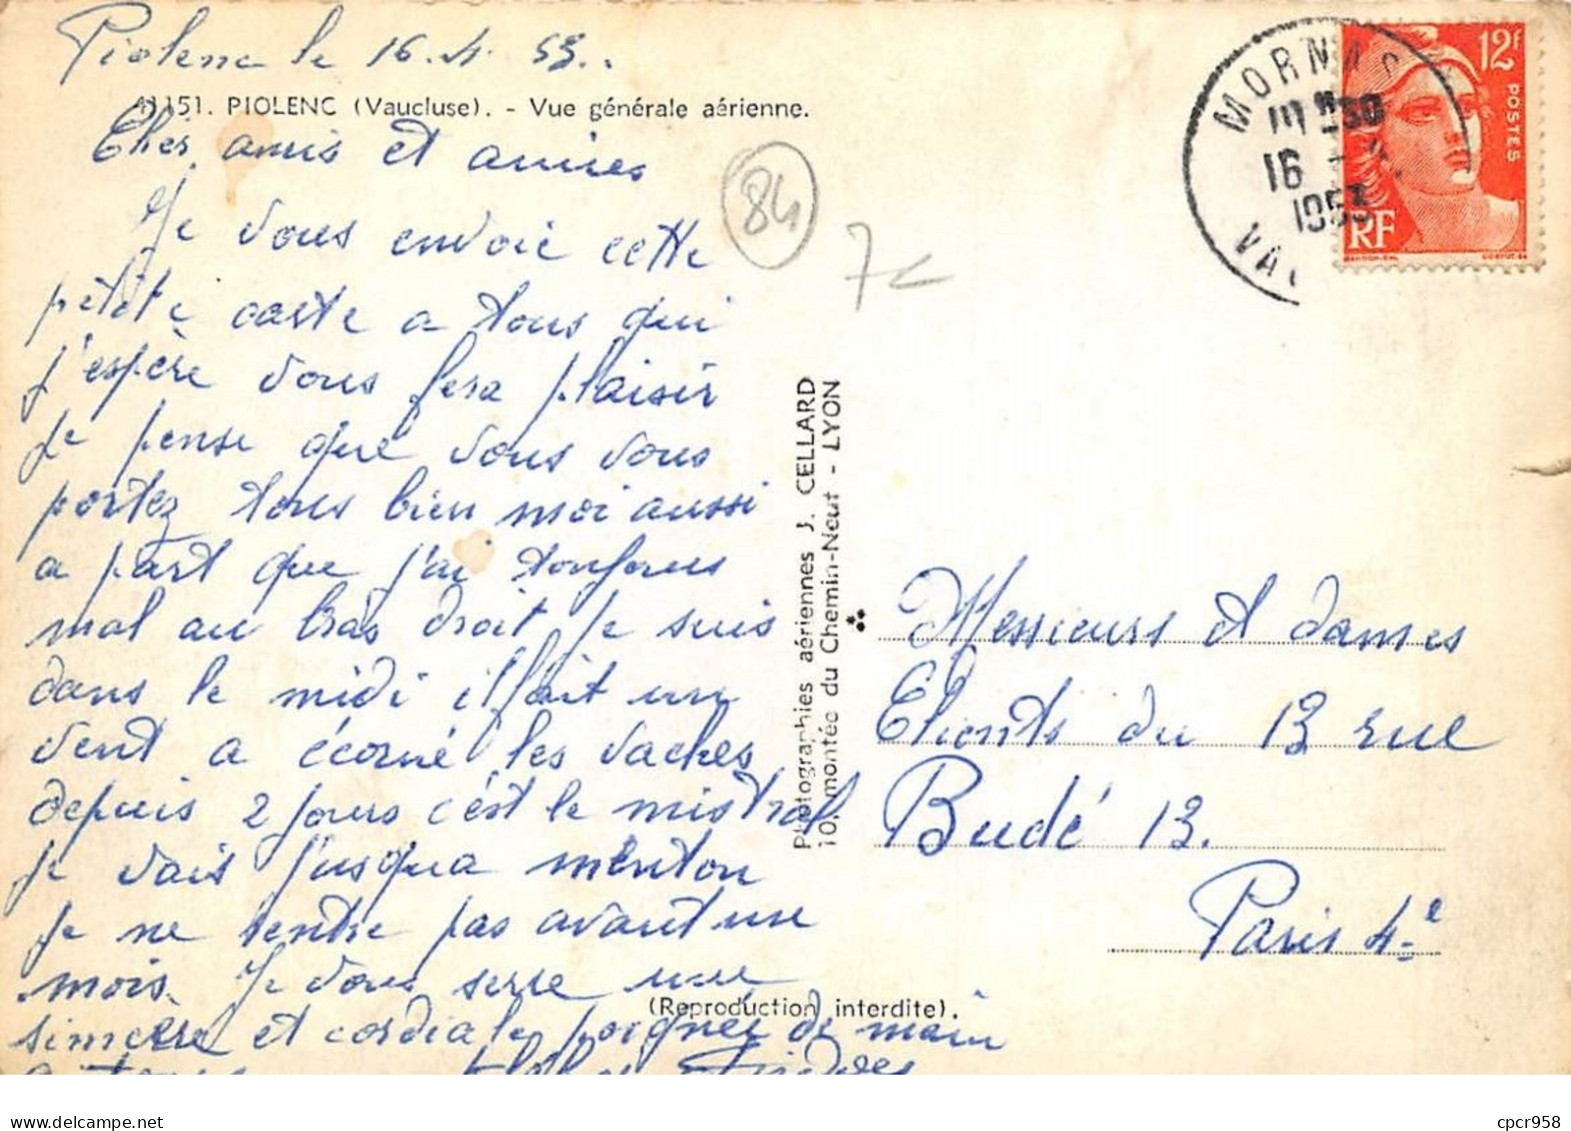 Piolenc le 16.4.53.
41151. PIOLENC (Vaucluse). - Vue générale aérienne.
Cher amis et amies
Je vous envoie cette
petite carte a tous qui
j'espère vous fera plaisir
Je pense que vous vous
portez tous bien moi aussi
a part que j'ai toujours
mal au bras droit Je suis
dans le midi il fait un
vent a écorné les vaches
depuis 2 jours c'est le mistral
je vais jusqua menton
Je ne rentre pas avant un
mois. Je vous serre une
sincere et cordiale poignée de main
a tous
84
7€
Photographies aériennes J. CELLARD
10, montée du Chemin-Neuf - LYON
(Reproduction interdite).
MORNAS
16
1953
VAU
12f
POSTES
RF
Messieurs et dames
Clients du 13 rue
Budé 13.
Paris 4e
cpcr958